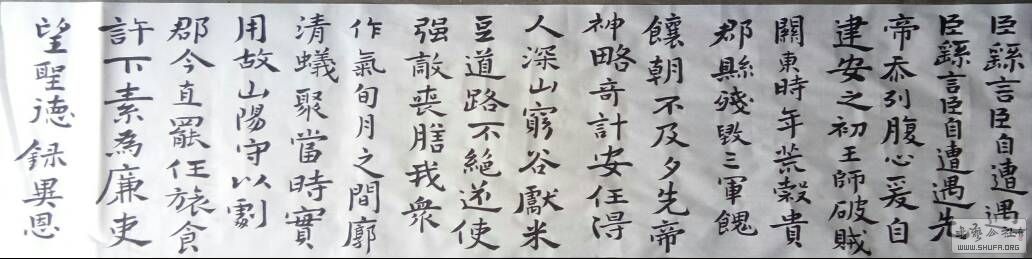 臣繇言臣自遭遇
臣繇言臣自遭遇先
帝忝列腹心爰自
建安之初王師破賊
關東時年荒穀貴
郡縣殘毀三軍餽
饟朝不及夕先帝
神略奇計安任得
人深山窮谷獻米
豆道路不絕遂使
强敵喪膳我衆
作氣旬月之間廓
清蟻聚當時實
用故山陽守以劇
郡今直罷任旅食
許下素為廉吏
望聖德録異恩
WWW.SHUFA.ORG